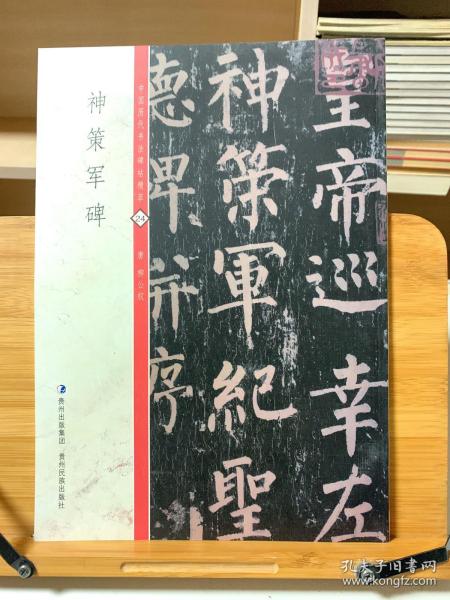 神策军碑
中国历代书法碑帖精萃
24
唐 柳公权
贵州出版集团 贵州民族出版社
皇帝巡幸左
神策軍紀聖
德碑并序
孔夫子旧书网
https://www.kongfz.com